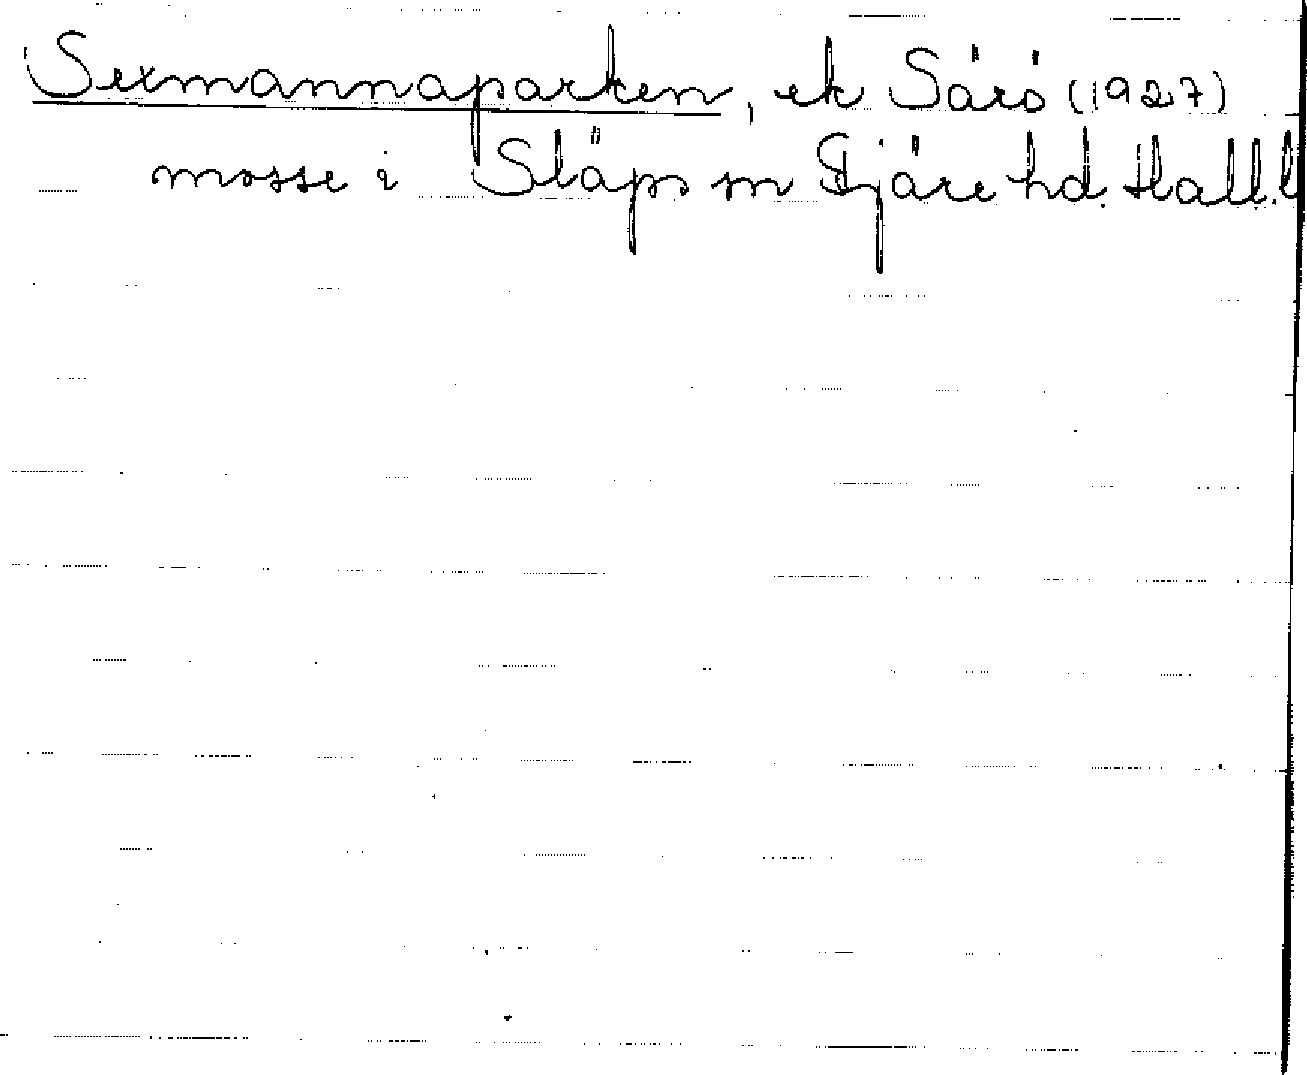 Sexmannaparken, ek Särö (1927)
mosse i Släps sn Fjäre hd. Hall. l